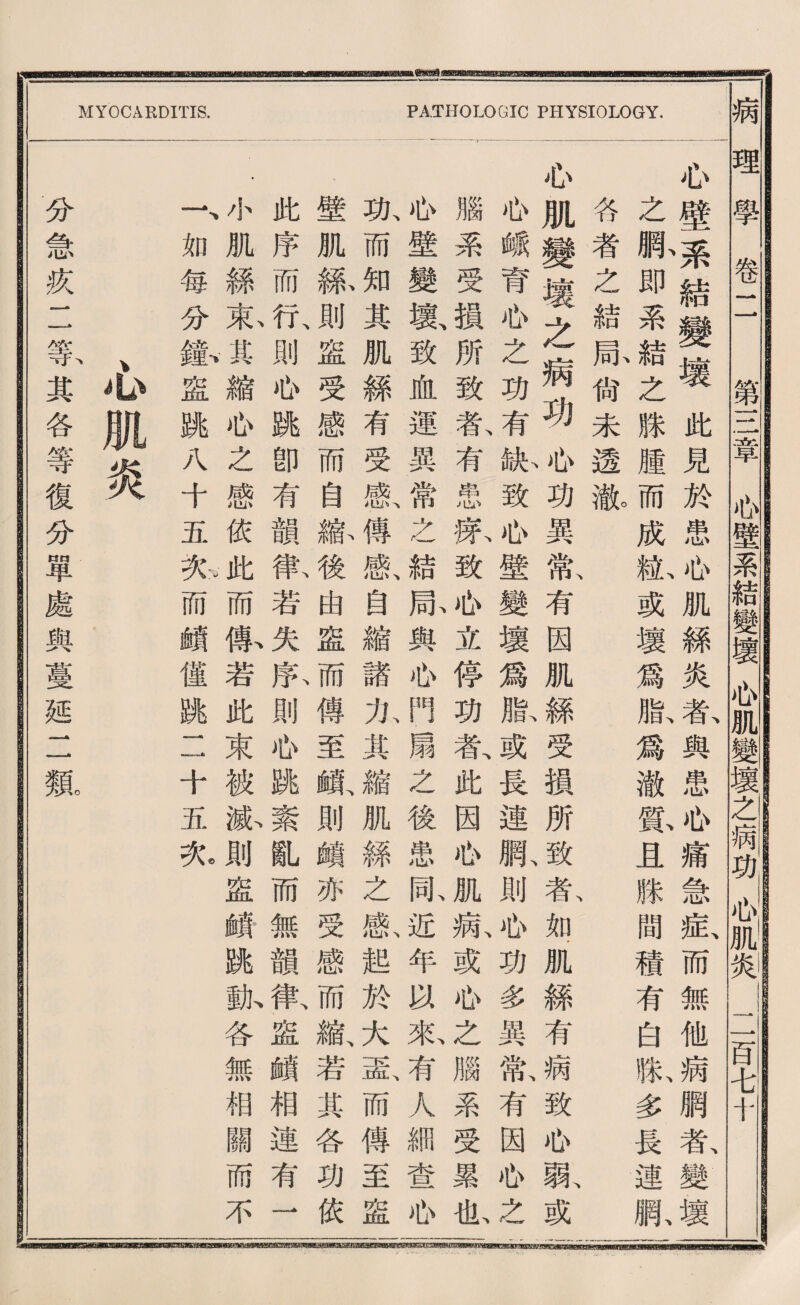 MYOCARDITIS.
PATHOLOGIC PHYSIOLOGY.
病理學 卷二 第三章 心壁系結變壞 心肌變壞之病功 心肌炎 二百七十
心壁系結變壞 此見於患心肌絲炎者、與患心痛急症、而無他病腡者、變壞
之腡、即系結之脒腫而成粒、或壞爲脂、爲澈質、且脒間積有白脒、多長連腡、
各者之結局、尙未透澈。
心肌變壞之病功 心功異常、有因肌絲受損所致者、如肌絲有病致心弱、或
心衇育心之功有缺、致心壁變壞爲脂、或長連腡、則心功多異常、有因心之
腦系受損所致者、有患痵、致心立停功者、此因心肌病、或心之腦系受累也、
心壁變壞、致血運異常之結局、與心門扇之後患同、近年以來、有人細查心
功、而知其肌絲有受感、傳感、自縮諸力、其縮肌絲之感、起於大衁、而傳至盗
壁肌絲、則盗受感而自縮、後由盗而傳至䪼、則䪼亦受感而縮、若其各功依
此序而行、則心跳卽有韻律、若失序、則心跳紊亂而無韻律、盗䪼相連有一
小肌絲束、其縮心之感依此而傳、若此束被滅、則盗䪼跳動、各無相關而不
一、如每分鐘、盗跳八十五次、而䪼僅跳二十五次。
心肌炎
分急疚二等、其各等復分單處與蔓延二類。